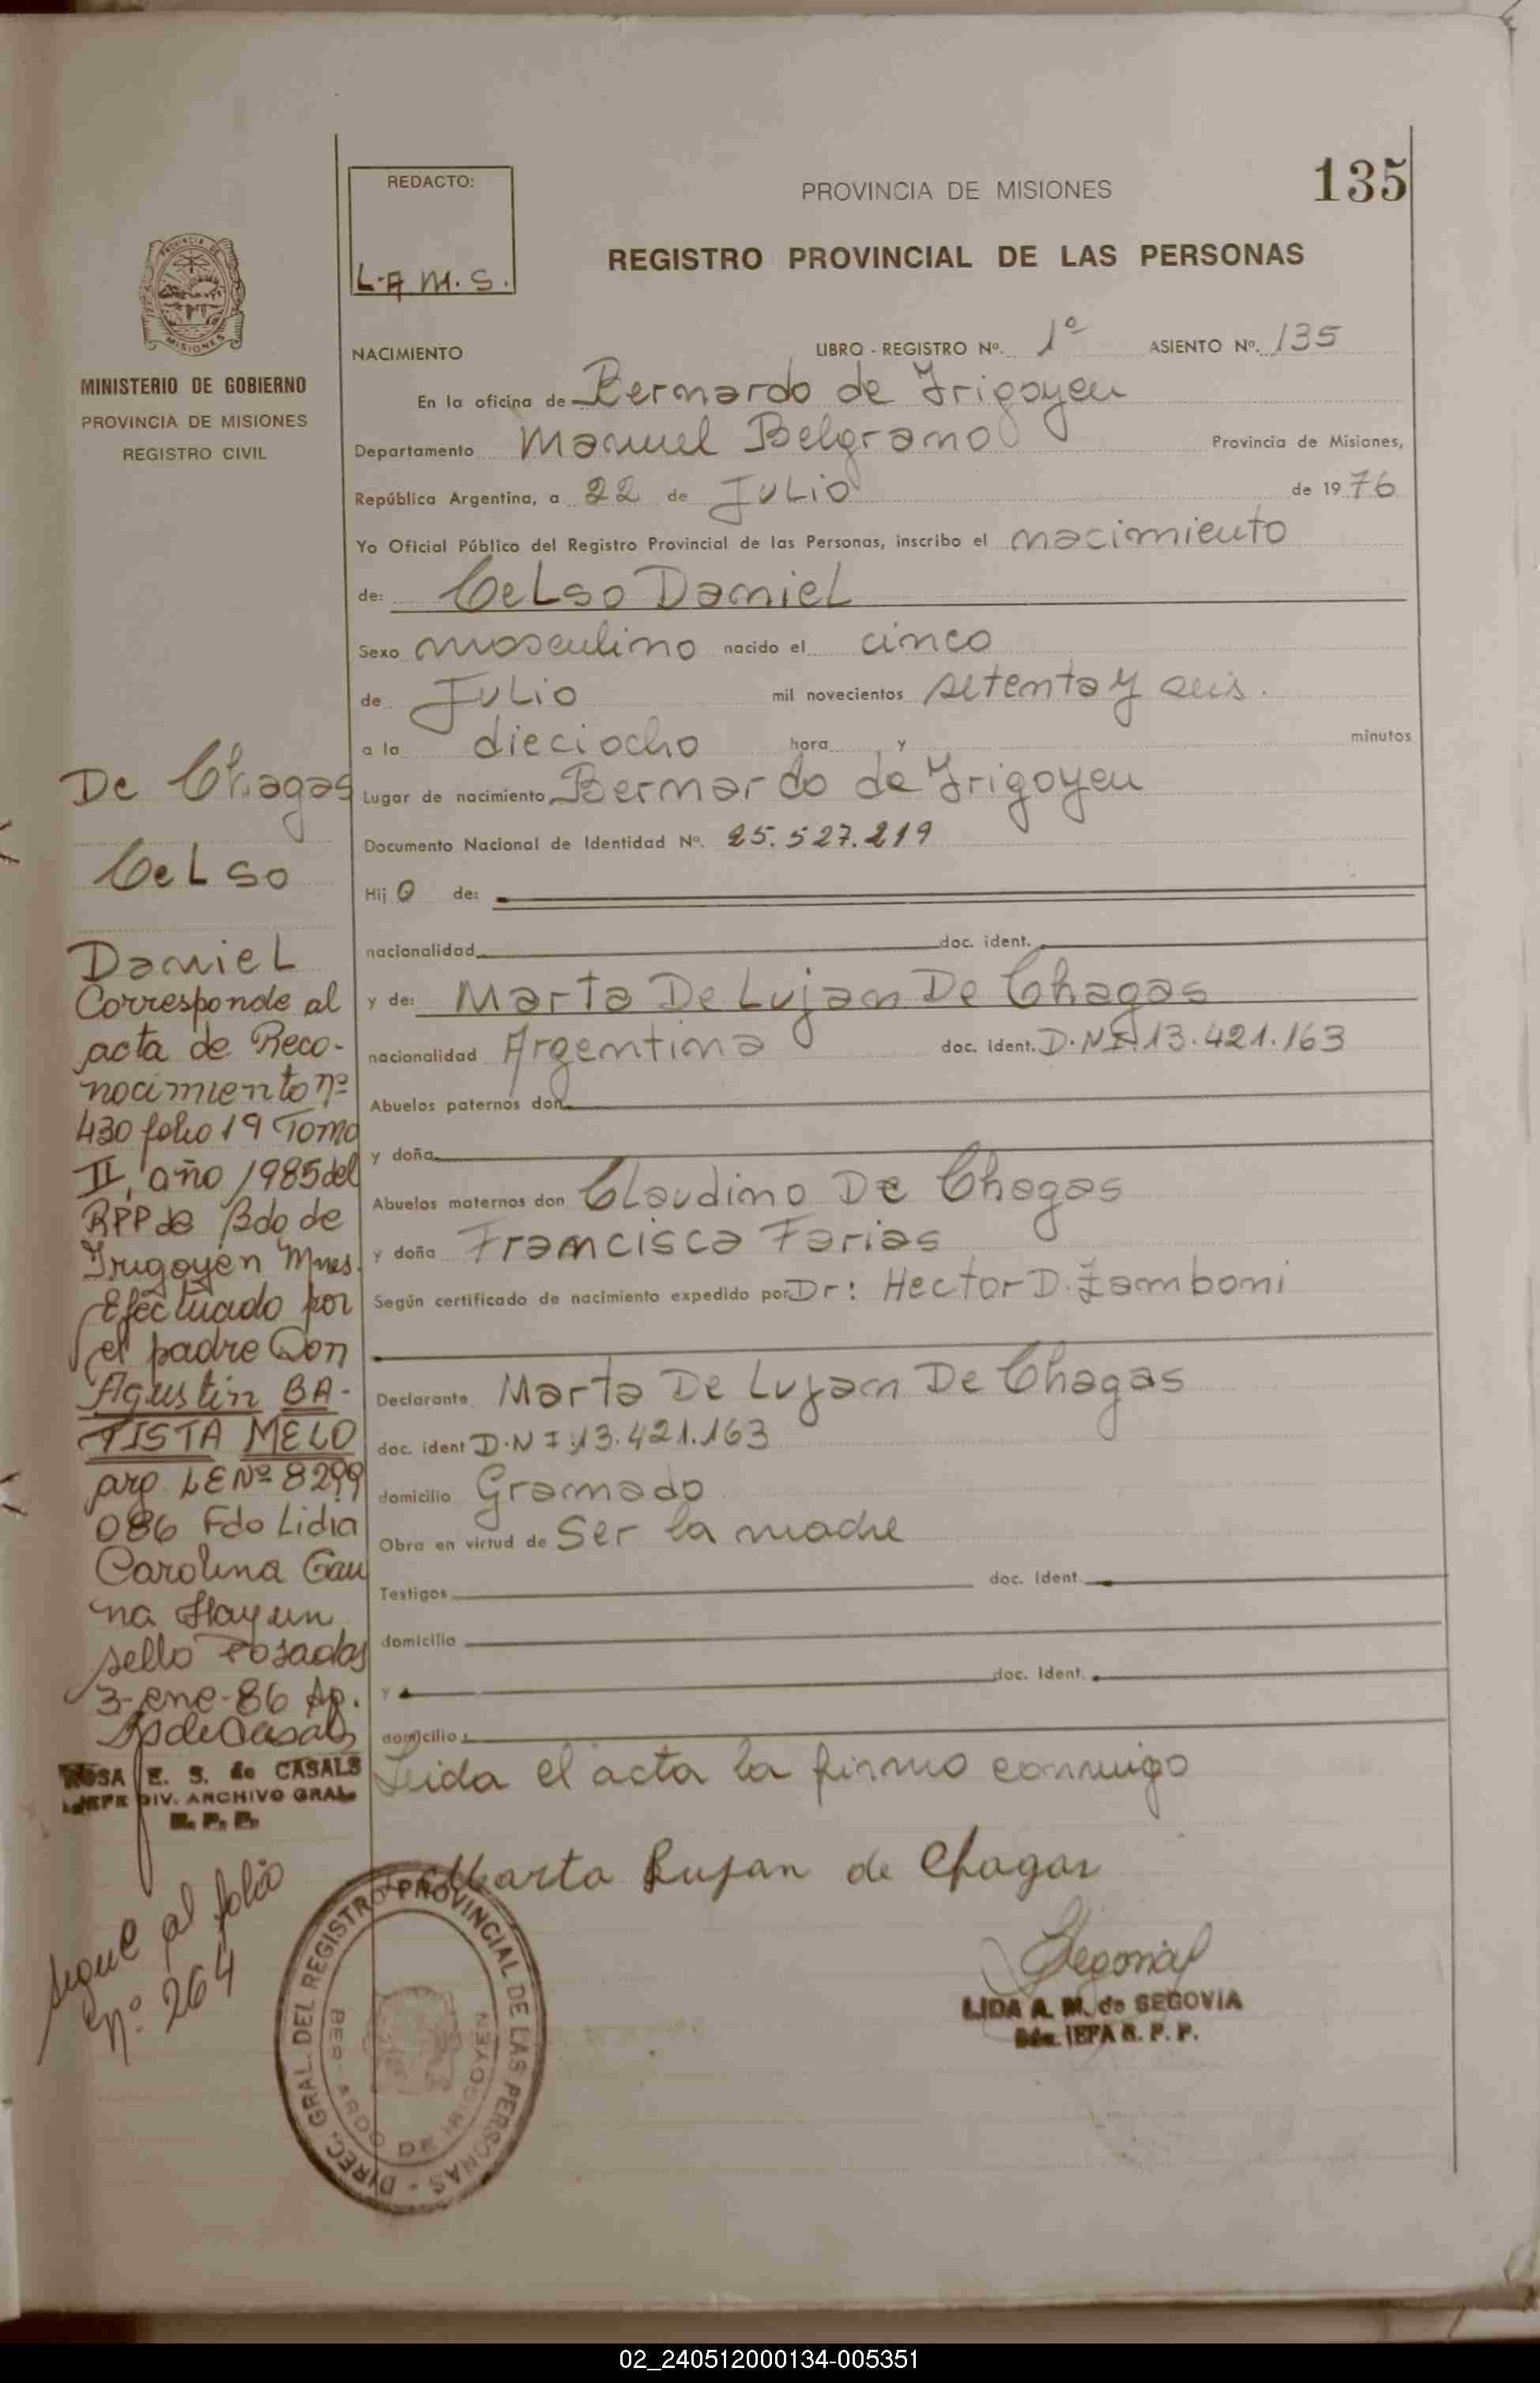 REDACTO:
L.A M. S.
PROVINCIA DE MISIONES
135
REGISTRO PROVINCIAL DE LAS PERSONAS
MISIONES
MINISTERIO DE GOBIERNO
PROVINCIA DE MISIONES
REGISTRO CIVIL
NACIMIENTO LIBRO - REGISTRO Nº. 1º ASIENTO Nº. 135
En la oficina de Bernardo de Irigoyen
Departamento Manuel Belgrano Provincia de Misiones,
República Argentina, a 22 de Julio de 1976
Yo Oficial Público del Registro Provincial de las Personas, inscribo el nacimiento
de: Celso Daniel
Sexo masculino nacido el cinco
de Julio mil novecientos setenta y seis.
a la dieciocho hora y minutos
Lugar de nacimiento Bernardo de Irigoyen
Documento Nacional de Identidad Nº. 25.527.219
Hij o de:
nacionalidad doc. ident.
y de: Marta De Lujan De Chagas
nacionalidad Argentina doc. ident. D.N.I. 13.421.163
Abuelos paternos don
y doña
Abuelos maternos don Claudino De Chagas
y doña Francisca Farias
Según certificado de nacimiento expedido por Dr: Hector D. Zamboni
Declarante Marta De Lujan De Chagas
doc. ident D.N I: 13.421.163
domicilio Gramado
Obra en virtud de Ser la madre
Testigos doc. Ident.
domicilio
y doc. Ident.
domicilio
Leida el acta la firma conmigo
Marta Lujan de Chagas
LIDA A. M. de SEGOVIA
De Chagas
Celso
Daniel
Corresponde al
acta de Reco-
nocimiento nº
430 folio 19 Tomo
II, año 1985 del
RPP de Bdo de
Irigoyen Mnes.
Efectuado por
el padre Don
Agustin BA-
TISTA MELO
arg. LE Nº 8299
086 Fdo Lidia
Carolina Gau
na Hay un
sello Posadas
3-ene-86
ROSA E. S. de CASALS
JEFE DIV. ARCHIVO GRAL
R. P. P.
sigue al folio
nº. 264
DIREC. GRAL. DEL REGISTRO PROVINCIAL DE LAS PERSONAS -
BERNARDO DE IRIGOYEN
02_240512000134-005351